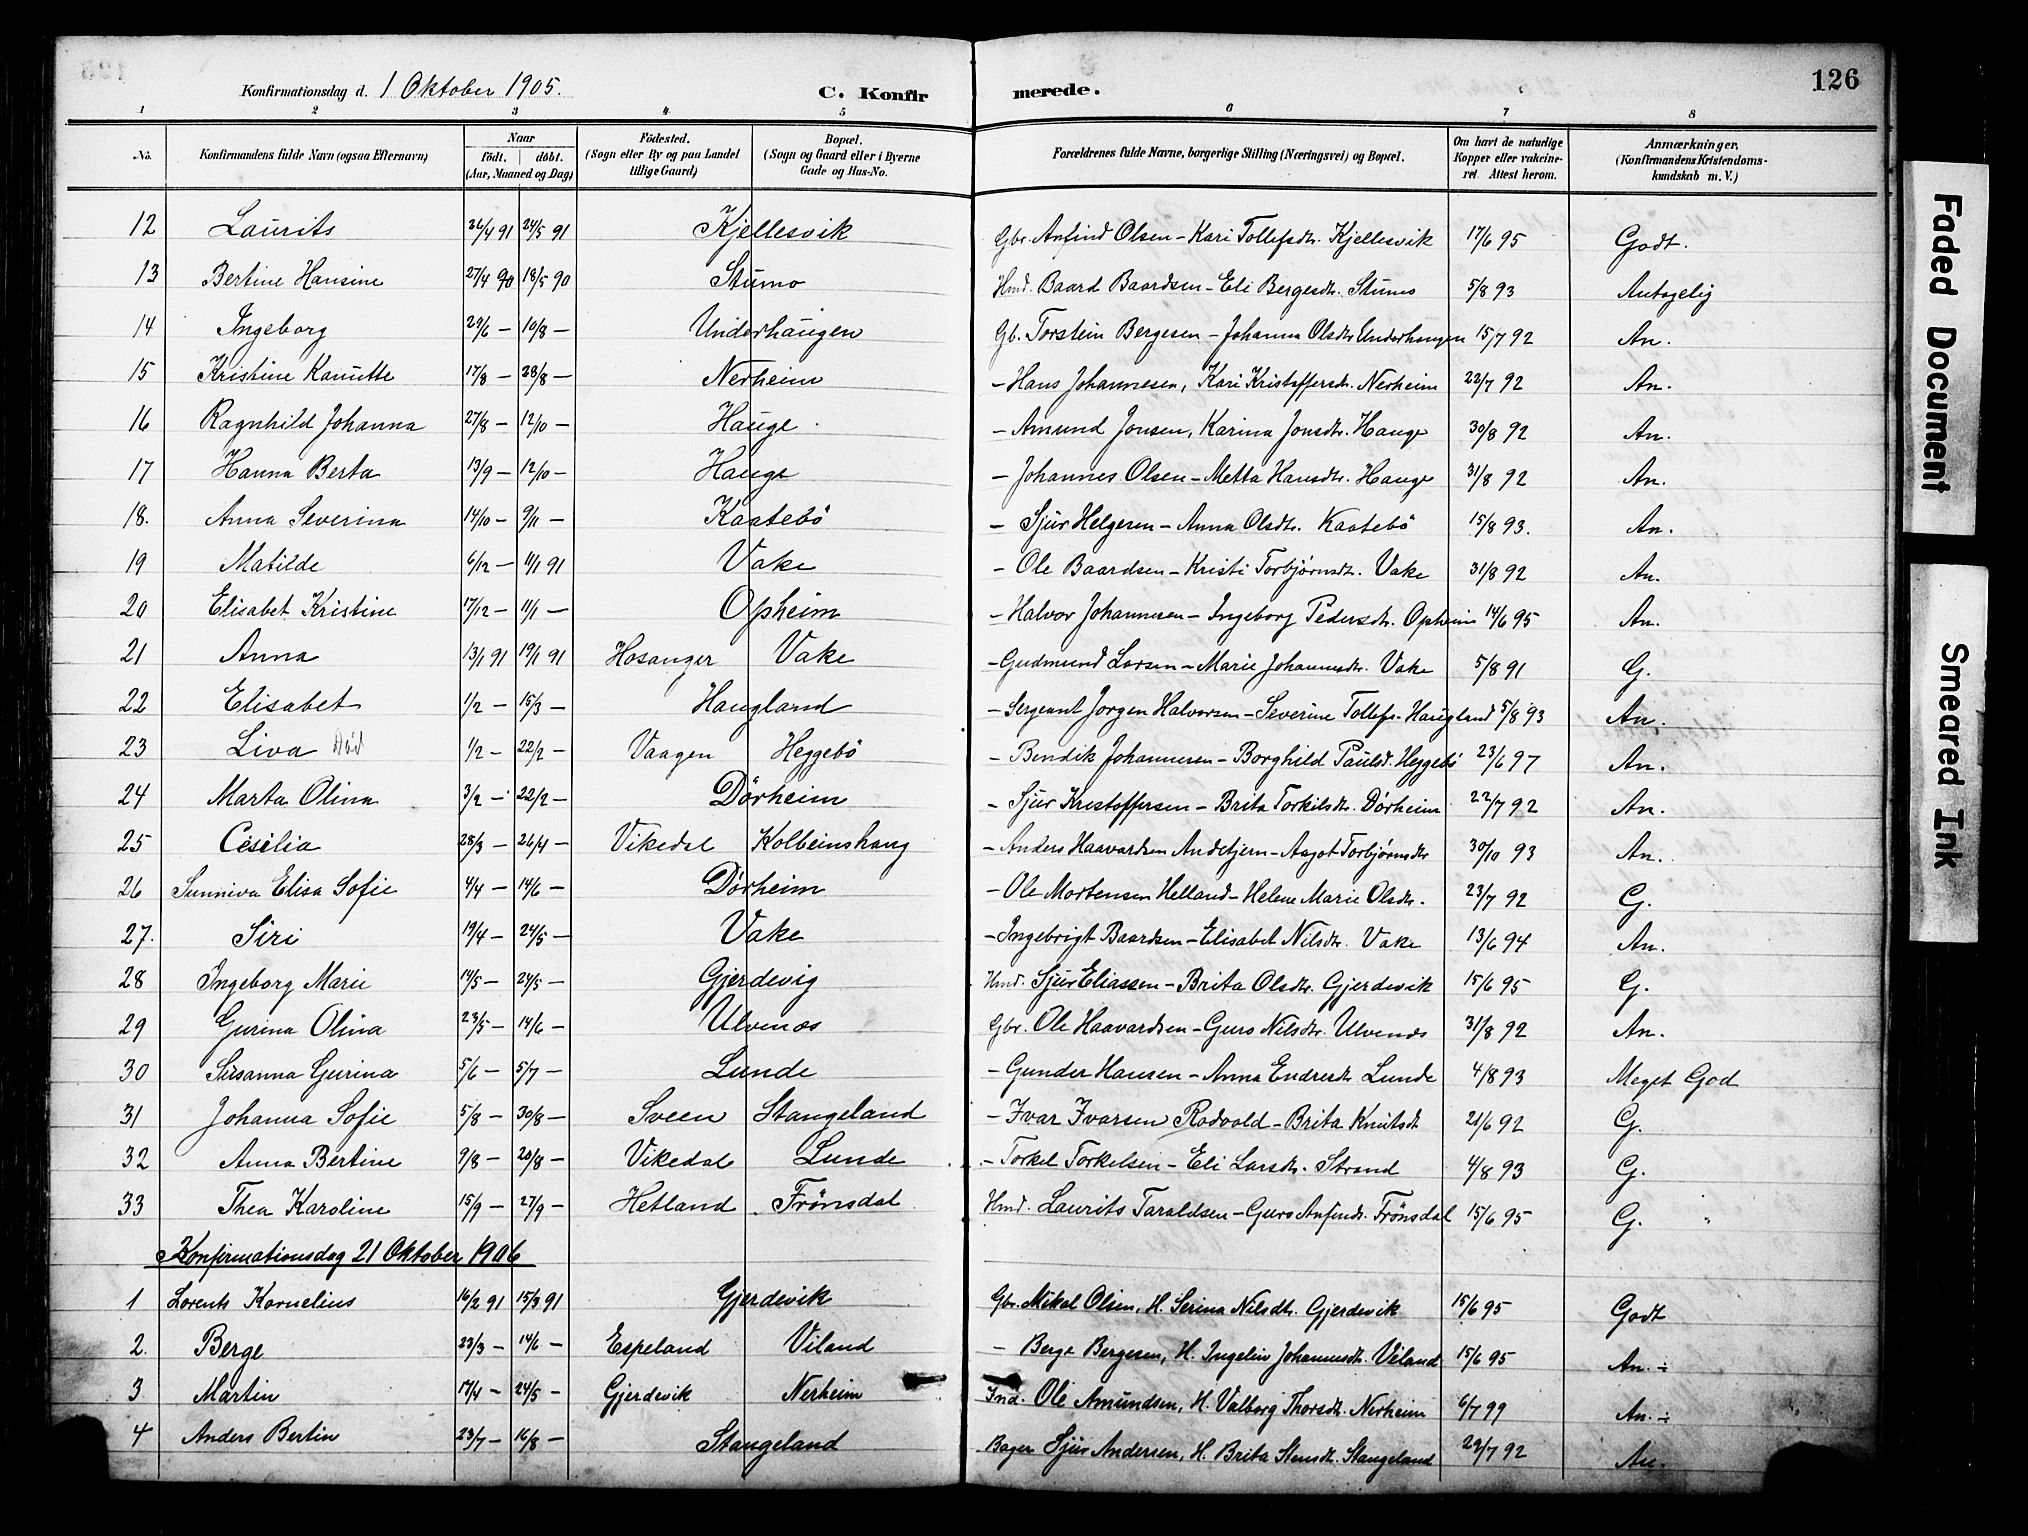 126
Konfirmationsdag d. 1 Oktober 1905.
C. Konfirmerede.
1 2 3 4 5 6 7 8
No. Konfirmandens fulde Navn (ogsaa Efternavn) Naar födt. döbt. (Aar, Maaned og Dag) Födested. (Sogn eller By og paa Landet tillige Gaard) Bopæl. (Sogn og Gaard eller i Byerne Gade og Hus-No. Forældrenes fulde Navne, borgerlige Stilling (Næringsvei) og Bopæl. Om havt de naturlige Kopper eller vakcineret. Attest herom. Anmærkninger. (Konfirmandens Kristendomskundskab m. V.)
12 Laurits 26/4 91 24/5 91 Kjellesvik Gbr. Anfind Olsen - Kari Tollefsdtr. Kjellesvik 17/6 95 Godt.
13 Bertine Hansine 27/4 90 18/5 90 Stumo Hmd. Baard Baardsen - Eli Bergesdtr. Stumo 5/8 93 Antagelig
14 Ingeborg 29/6 — 10/8 — Underhaugen Gb. Torstein Bergesen - Johanna Olsdtr Underhaugen 15/7 92 An.
15 Kristine Kanutte 17/8 — 28/8 — Nerheim - Hans Johannesen, Kari Kristoffersdtr. Nerheim 22/7 92 An.
16 Ragnhild Johanna 27/8 — 12/10 — Hauge - Amund Jonsen, Karina Jonsdtr. Hauge 30/8 92 An.
17 Hanna Berta 13/9 — 12/10 — Hauge - Johannes Olsen - Metta Hansdtr. Hauge 31/8 92 An.
18. Anna Severina 14/10 — 9/11 — Kaatebö - Sjur Helgesen - Anna Olsdtr. Kaatebö 15/8 93. An.
19 Matilde 6/12 — 11/1 91 Vake - Ole Baardsen - Kristi Torbjørnsdtr. Vake 31/8 92 An.
20 Elisabet Kristine 17/12 — 11/1 — Opheim - Halvor Johannesen - Ingeborg Pedersdtr. Opheim 14/6 95 An.
21 Anna 13/1 91 19/1 91 Hosanger Vake - Gudmund Larsen - Marie Johannesdtr. Vake 5/8 91 G.
22 Elisabet 1/2 — 15/3 — Haugland - Sergeant Jørgen Halvorsen - Severine Tollefs. Haugland 5/8 93 An.
23 Liva Död 1/2 — 22/2 — Vaagen Heggebö - Bendik Johannesen - Borghild Paulsd. Heggebö 23/6 97 An.
24 Marta Olina 3/2 — 22/2 — Dørheim - Sjur Kristoffersen - Brita Torkilsdtr. Dørheim 22/7 92 An.
25 Cesilia 28/3 — 26/4 — Vikedal Kolbeinshaug - Anders Haavardsen - Aagot Torbjørnsdtr 30/10 93 An.
26 Sunniva Elisa Sofie 4/4 — 14/6 — Dørheim - Ole Mortensen Helland - Helene Marie Olsdtr. 23/7 92 G.
27. Siri 19/4 — 24/5 — Vake - Ingebrigt Baardsen - Elisabet Nilsdtr. Vake 13/6 94 An.
28 Ingeborg Marie 14/5 — 24/5 — Gjerdevig Hmd. Sjur Eliassen - Brita Olsdtr. Gjerdevik 15/6 95 G.
29 Gurina Olina 23/5 — 14/6 — Ulvenos Gbr. Ole Haavardsen - Guro Nilsdtr. Ulvenös 31/8 92 An.
30 Susanna Gurina 5/6 — 5/7 — Lunde - Gunder Hansen - Anna Endresdtr Lunde 4/8 93 Meget God
31 Johanna Sofie 5/8 — 30/8 — Sveen Stangeland - Ivar Ivarsen Rødvold - Brita Knutsdtr 21/6 92 G.
32 Anna Bertine 9/8 — 20/8 — Vikedal Lunde - Torkel Torkelsen - Eli Larsdtr. Strand 4/8 93 G.
33 Thea Karoline 15/9 — 27/9 — Hetland Frönsdal Hmd. Laurits Taraldsen - Guro Anfindr. Frönsdal 15/6 95 G. "
Konfirmationsdag 21 Oktober 1906
1 Lorents Kornelius 16/2 91 15/3 91 Gjerdevik Gbr. Mikal Olsen, H. Serina Nilsdtr. Gjerdevik 15/6 95 Godt
2. Berge 23/3 — 14/6 — Espeland Viland - Berge Bergesen, H. Ingeliv Johannesdtr. Viland 15/6 95 An. ÷
3 Martin 17/4 — 24/5 — Gjerdevik Nerheim Ind. Ole Amundsen, H. Valborg Thorsdtr. Nerheim 6/7 99 An. ÷
4 Anders Bertin 23/7 — 16/8 — Stangeland Bager Sjur Andersen, H. Brita Stensdtr. Stangeland 29/7 92 An.
Faded Document
Smeared Ink